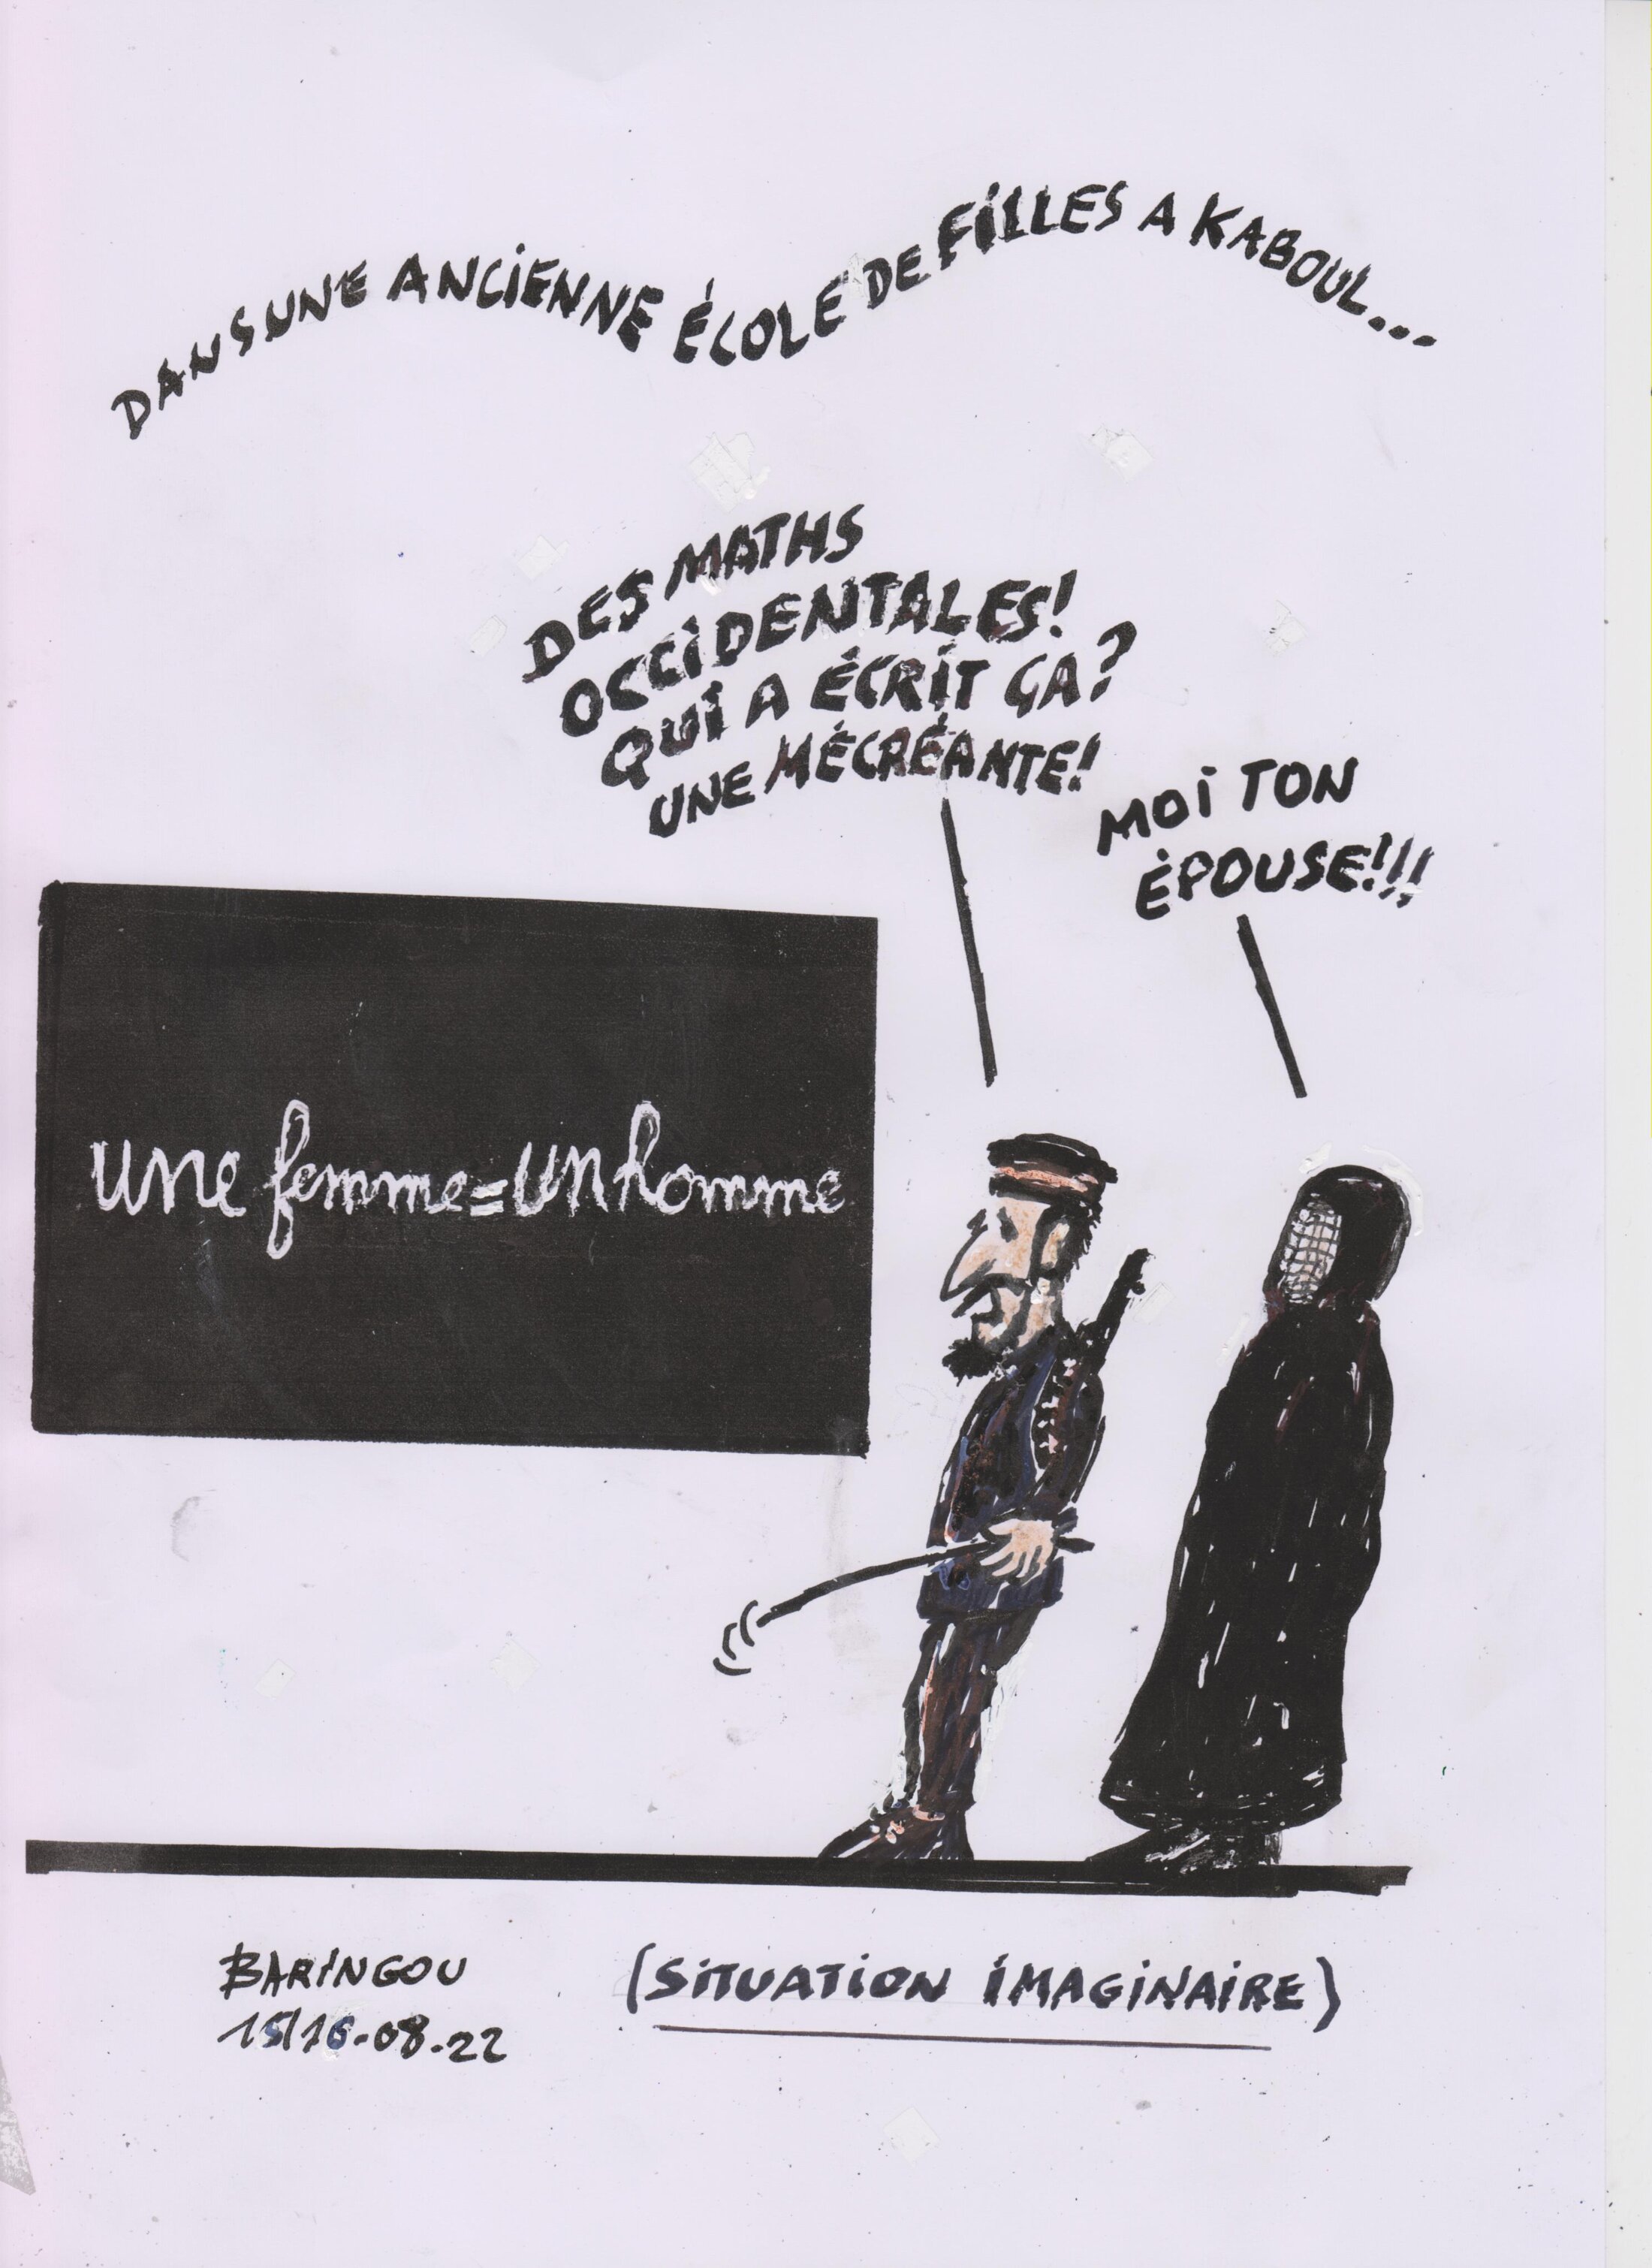 DANS UNE ANCIENNE ÉCOLE DE FILLES A KABOUL...
DES MATHS
OCCIDENTALES!
QUI A ÉCRIT ÇA?
UNE MÉCRÉANTE!
MOI TON
ÉPOUSE!!!
une femme = un homme
BARINGOU
15/16-08-22
(SITUATION IMAGINAIRE)